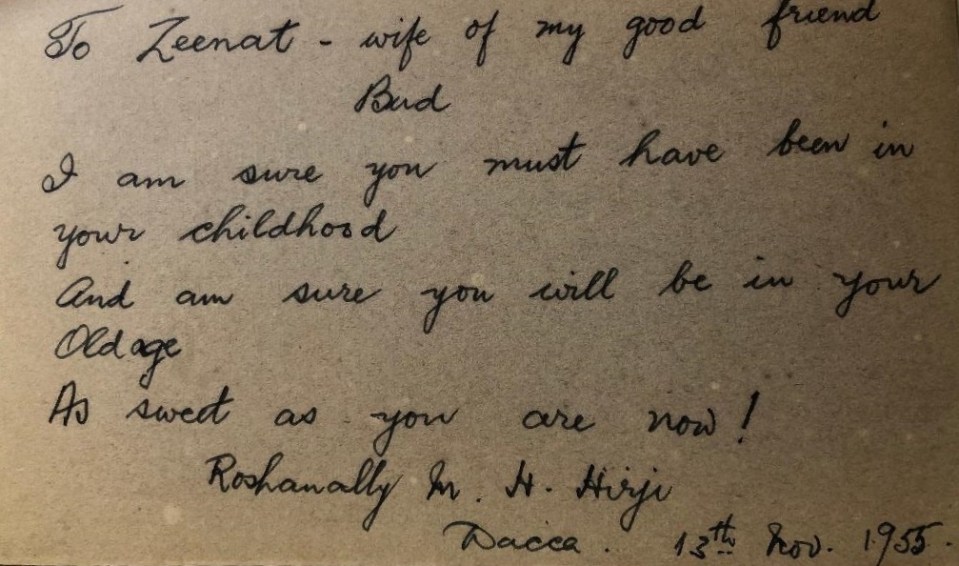 To Zeenat - wife of my good friend
Bud
I am sure you must have been in
your childhood
And am sure you will be in your
Old age
As sweet as you are now!
Roshanally M. H. Hirji
Dacca. 13th Nov. 1955.